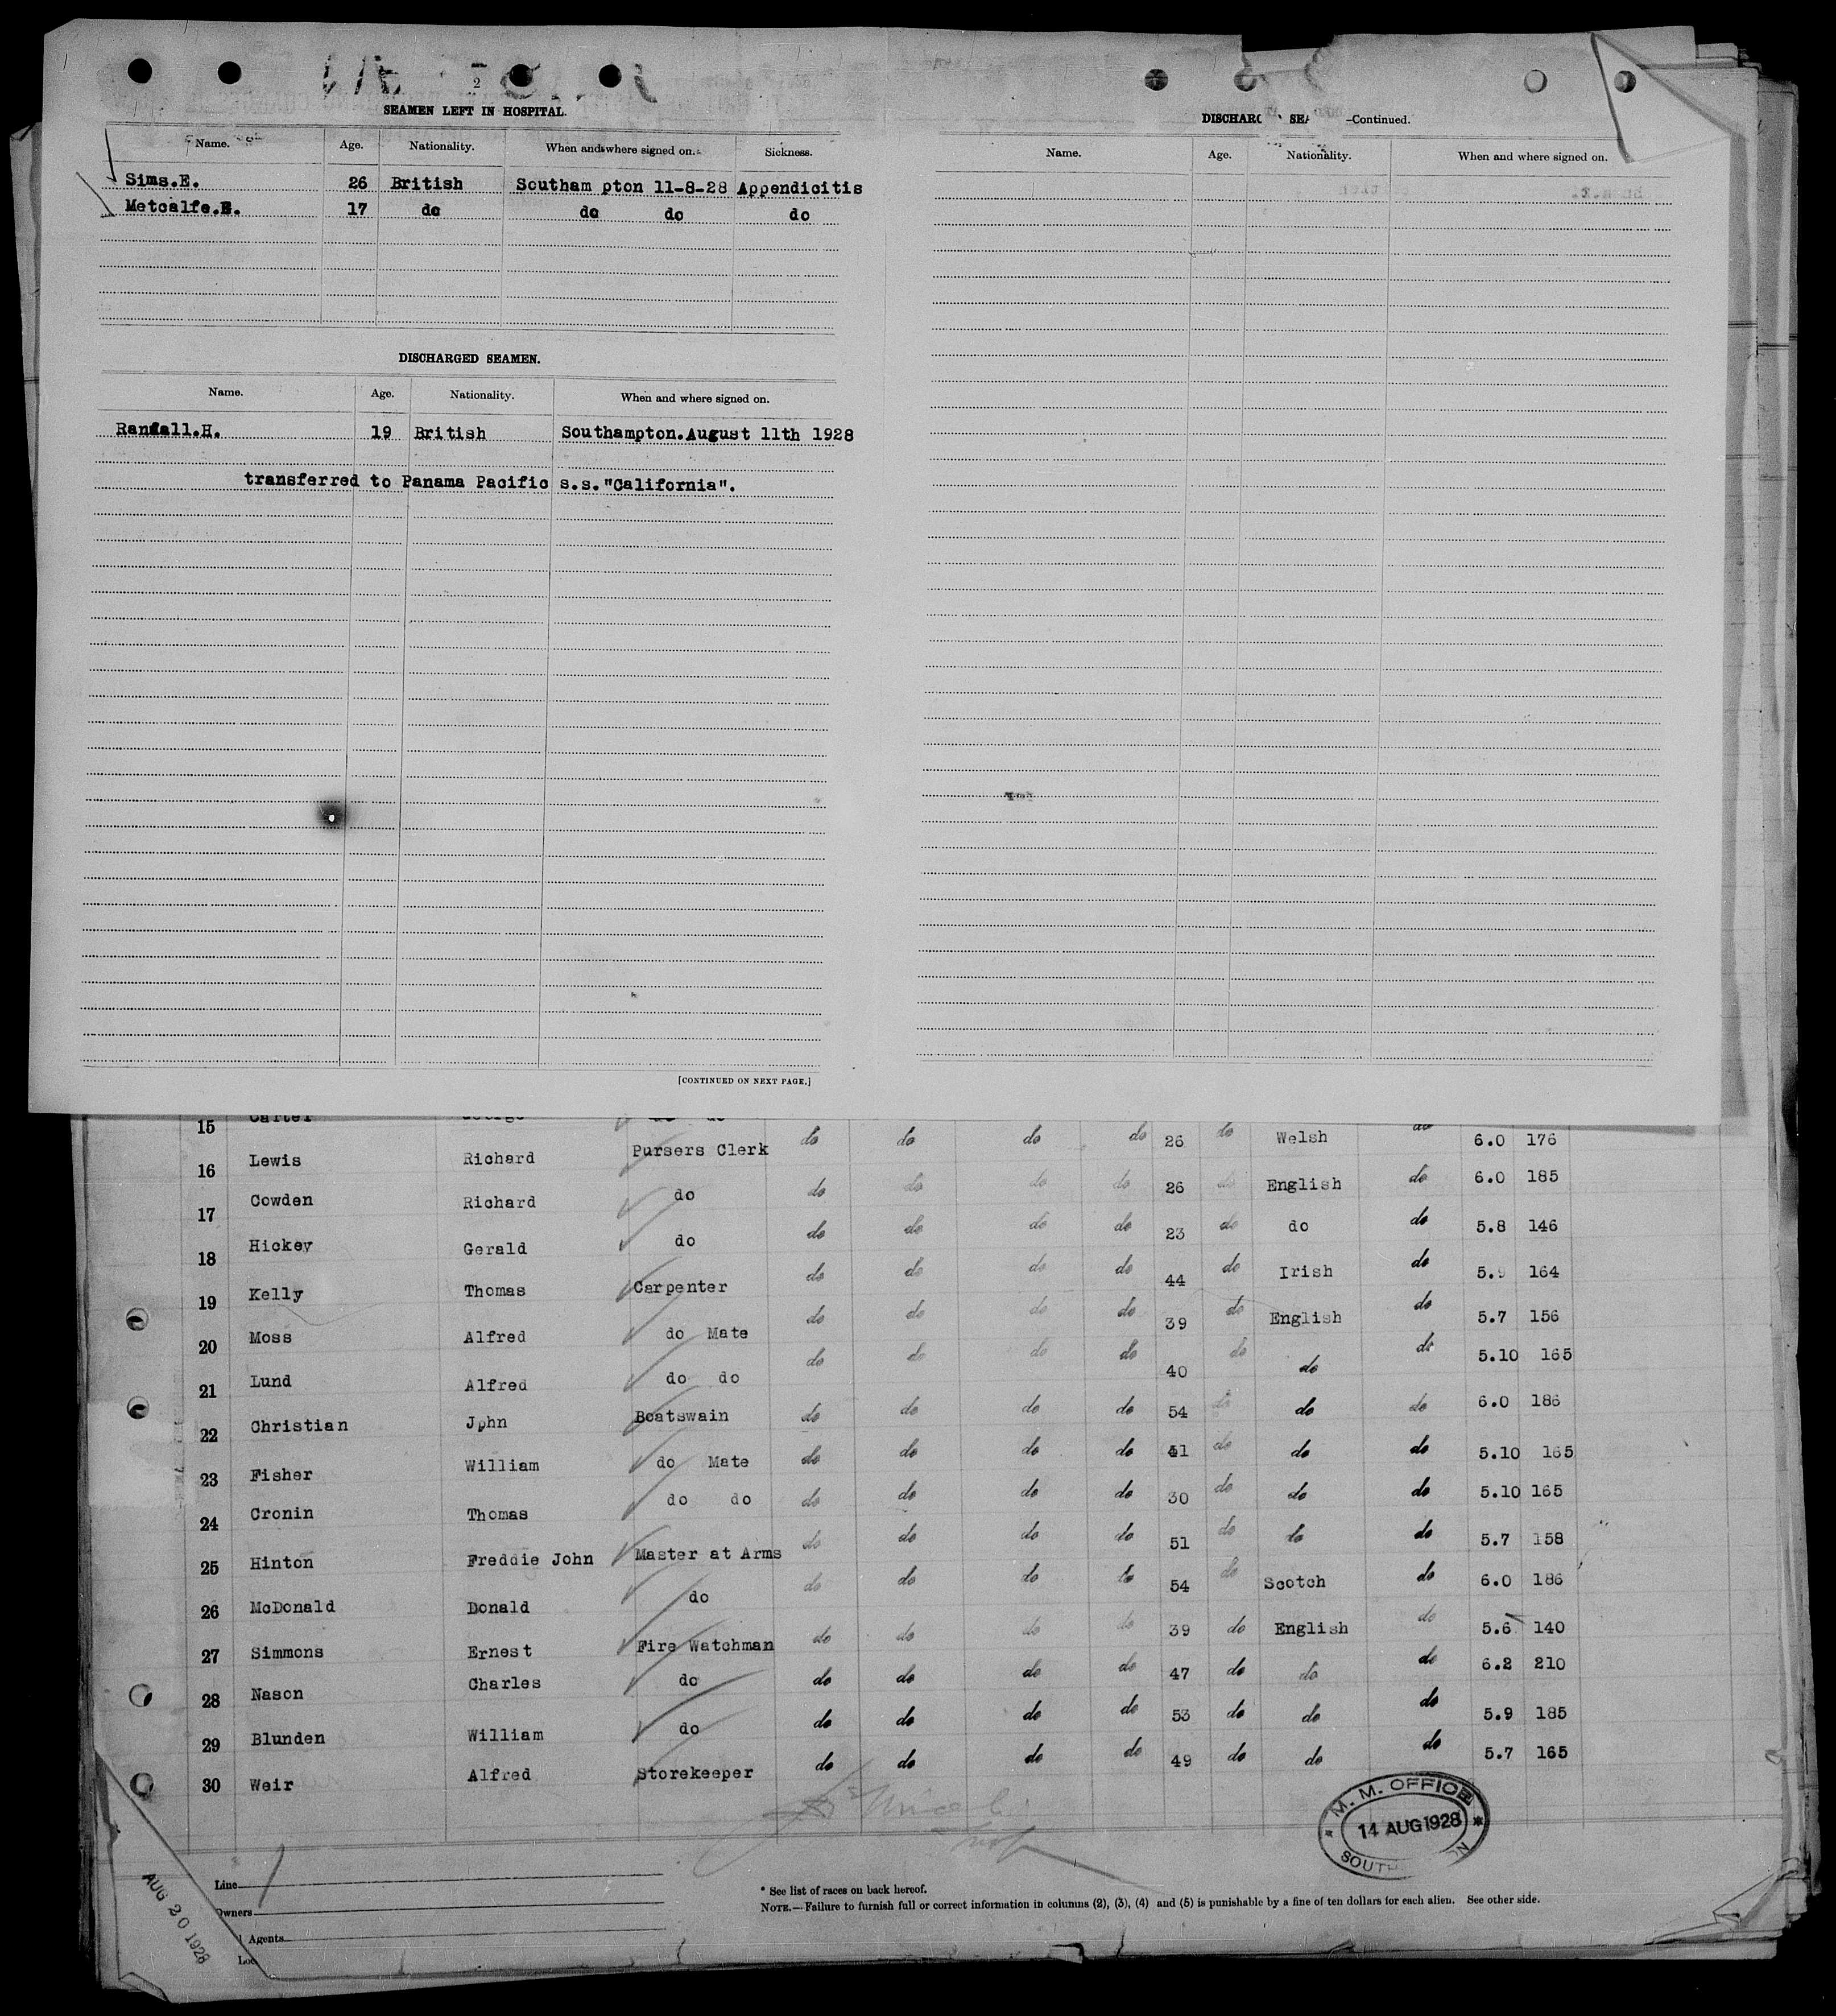 2
SEAMEN LEFT IN HOSPITAL.
Name. Age. Nationality. When and where signed on. Sickness.
Sims.E. 26 British Southam pton 11-8-28 Appendicitis
Metcalfe.E. 17 do do do do
DISCHARGED SEAMEN.
Name. Age. Nationality. When and where signed on.
Randall.H. 19 British Southampton.August 11th 1928
transferred to Panama Pacific s.s."California".
[CONTINUED ON NEXT PAGE.]
DISCHARG SEA —Continued.
Name. Age. Nationality. When and where signed on.
15 Carter George do do do do do do 26 do Welsh do 6.0 176
16 Lewis Richard Pursers Clerk do do do do 26 do English do 6.0 185
17 Cowden Richard do do do do do 23 do do do 5.8 146
18 Hickey Gerald do do do do do 44 do Irish do 5.9 164
19 Kelly Thomas Carpenter do do do do 39 do English do 5.7 156
20 Moss Alfred do Mate do do do do 40 do do do 5.10 165
21 Lund Alfred do do do do do do 54 do do do 6.0 186
22 Christian John Boatswain do do do do 41 do do do 5.10 165
23 Fisher William do Mate do do do do 30 do do do 5.10 165
24 Cronin Thomas do do do do do do 51 do do do 5.7 158
25 Hinton Freddie John Master at Arms do do do do 54 do Scotch do 6.0 186
26 McDonald Donald do do do do do 39 do English do 5.6 140
27 Simmons Ernest Fire Watchman do do do do 47 do do do 6.2 210
28 Nason Charles do do do do do 53 do do do 5.9 185
29 Blunden William do do do do do 49 do do do 5.7 165
30 Weir Alfred Storekeeper
M. M. OFFICE
14 AUG 1928
SOUTH ON
AUG 20 1928
Line
Owners
Agents
Loc
* See list of races on back hereof.
NOTE.—Failure to furnish full or correct information in columns (2), (3), (4) and (5) is punishable by a fine of ten dollars for each alien. See other side.